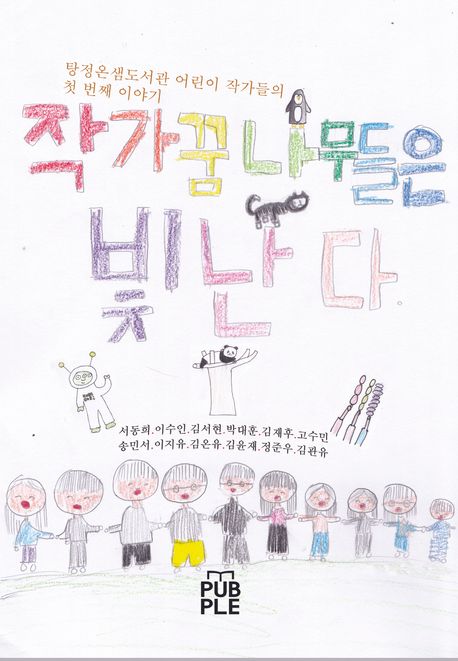 탕정온샘도서관 어린이 작가들의
첫 번째 이야기
작가꿈나무들은
빛난다
서동희.이수인.김서현.박대훈.김재후.고수민
송민서.이지유.김온유.김윤재.정준우.김관유
PUB
PLE